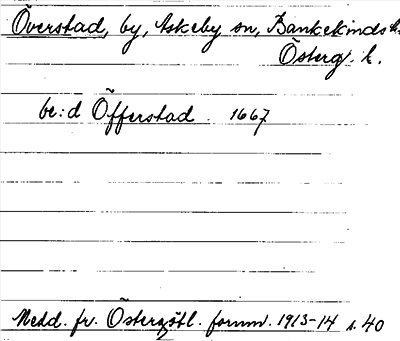 Överstad, by, Askeby sn, Bankekinds hd.
Österg. l.
be:d Öfferstad. 1667
Medd. fr. Östergötl. fornm. 1913-14 s. 40